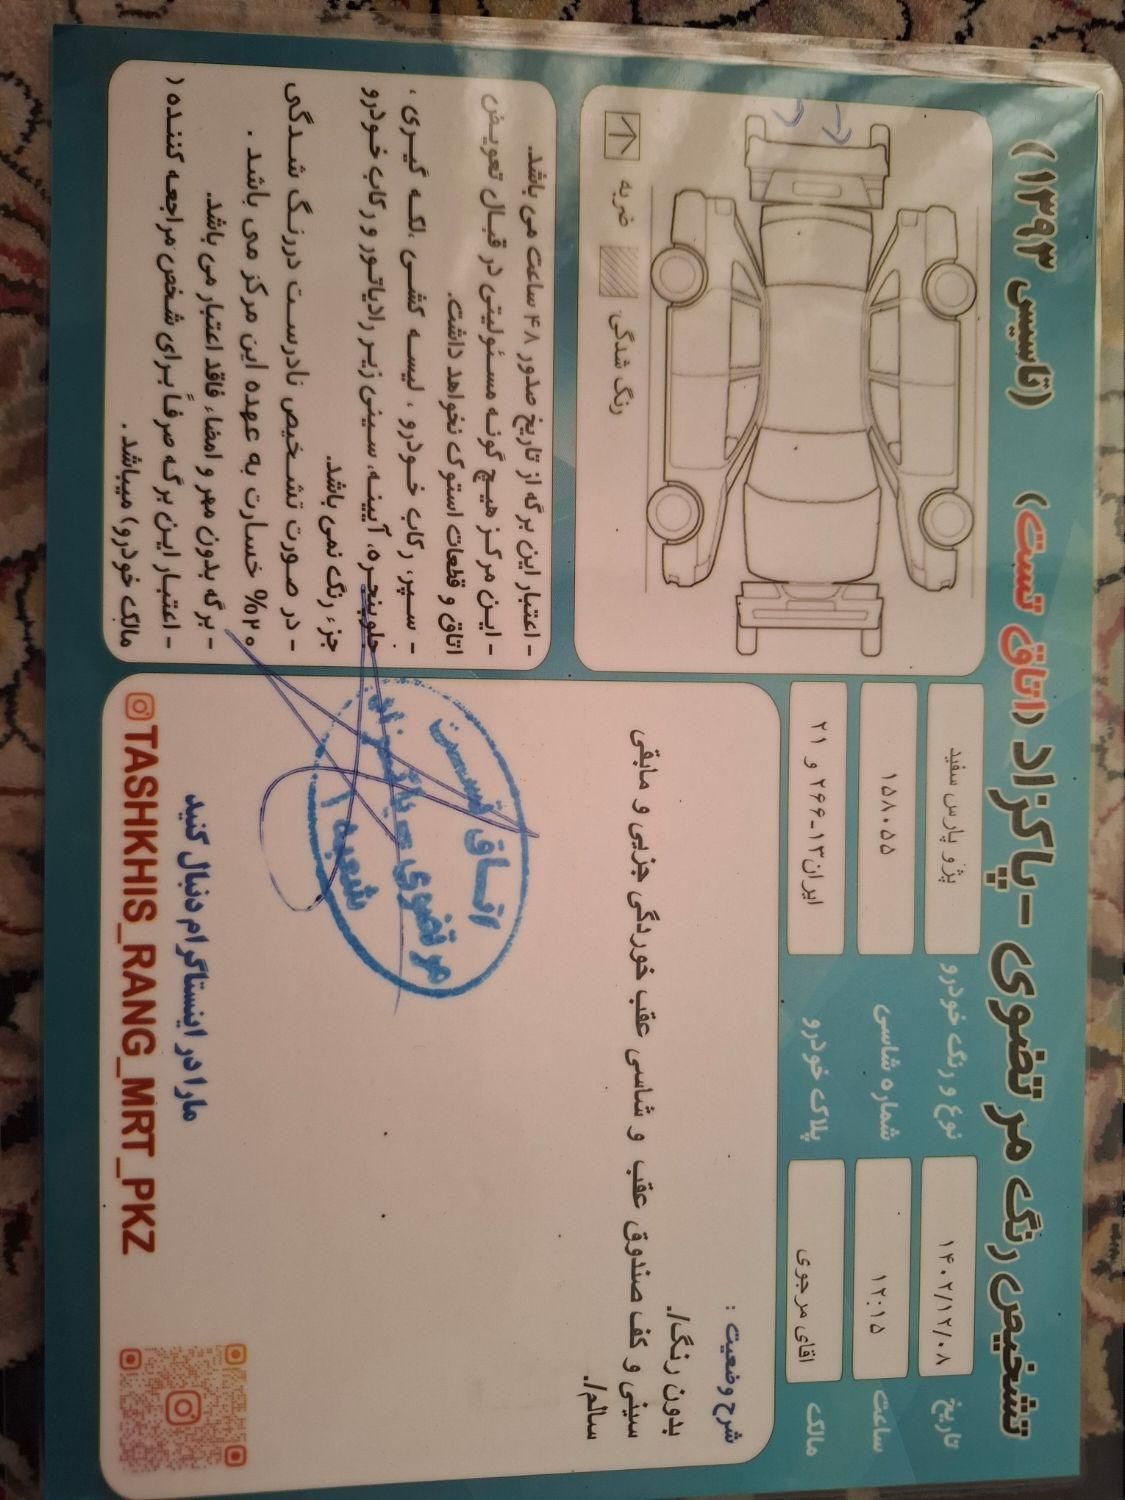 تشخیص رنگ مرتضوی - پاکزاد (اتاق تست) (تاسیس ۱۳۹۳)
تاریخ ۱۴۰۲/۱۲/۰۸ نوع و رنگ خودرو پژو پارس سفید
ساعت ۱۲:۱۵ شماره شاسی ۱۵۸۰۵۵
مالک اقای مرجوی پلاک خودرو ایران۱۳-۲۶۶ و ۲۱
ضربه رنگ شدگی
شرح وضعیت :
بدون رنگ/.
سینی و کف صندوق عقب و شاسی عقب خوردگی جزیی و مابقی
سالم/.
- اعتبار این برگه از تاریخ صدور ۴۸ ساعت می باشد.
- این مرکز هیچ گونه مسئولیتی در قبال تعویض
اتاق و قطعات استوک نخواهد داشت.
- سپر، رکاب خودرو ، لیسه کشی ،لکه گیری ،
جلوپنجره، آیینه، سینی زیر رادیاتور و رکاب خودرو
جزء رنگ نمی باشد.
- در صورت تشخیص نادرست دررنگ شدگی
۲۰% خسارت به عهده این مرکز می باشد .
- برگه بدون مهر و امضاء فاقد اعتبار می باشد.
- اعتبار این برگه صرفاً برای شخص مراجعه کننده (
مالک خودرو) میباشد .
اتاق تست
مرتضوی - پاکزاد
شعبه ۱
مارا در اینستاگرام دنبال کنید
TASHKHIS_RANG_MRT_PKZ